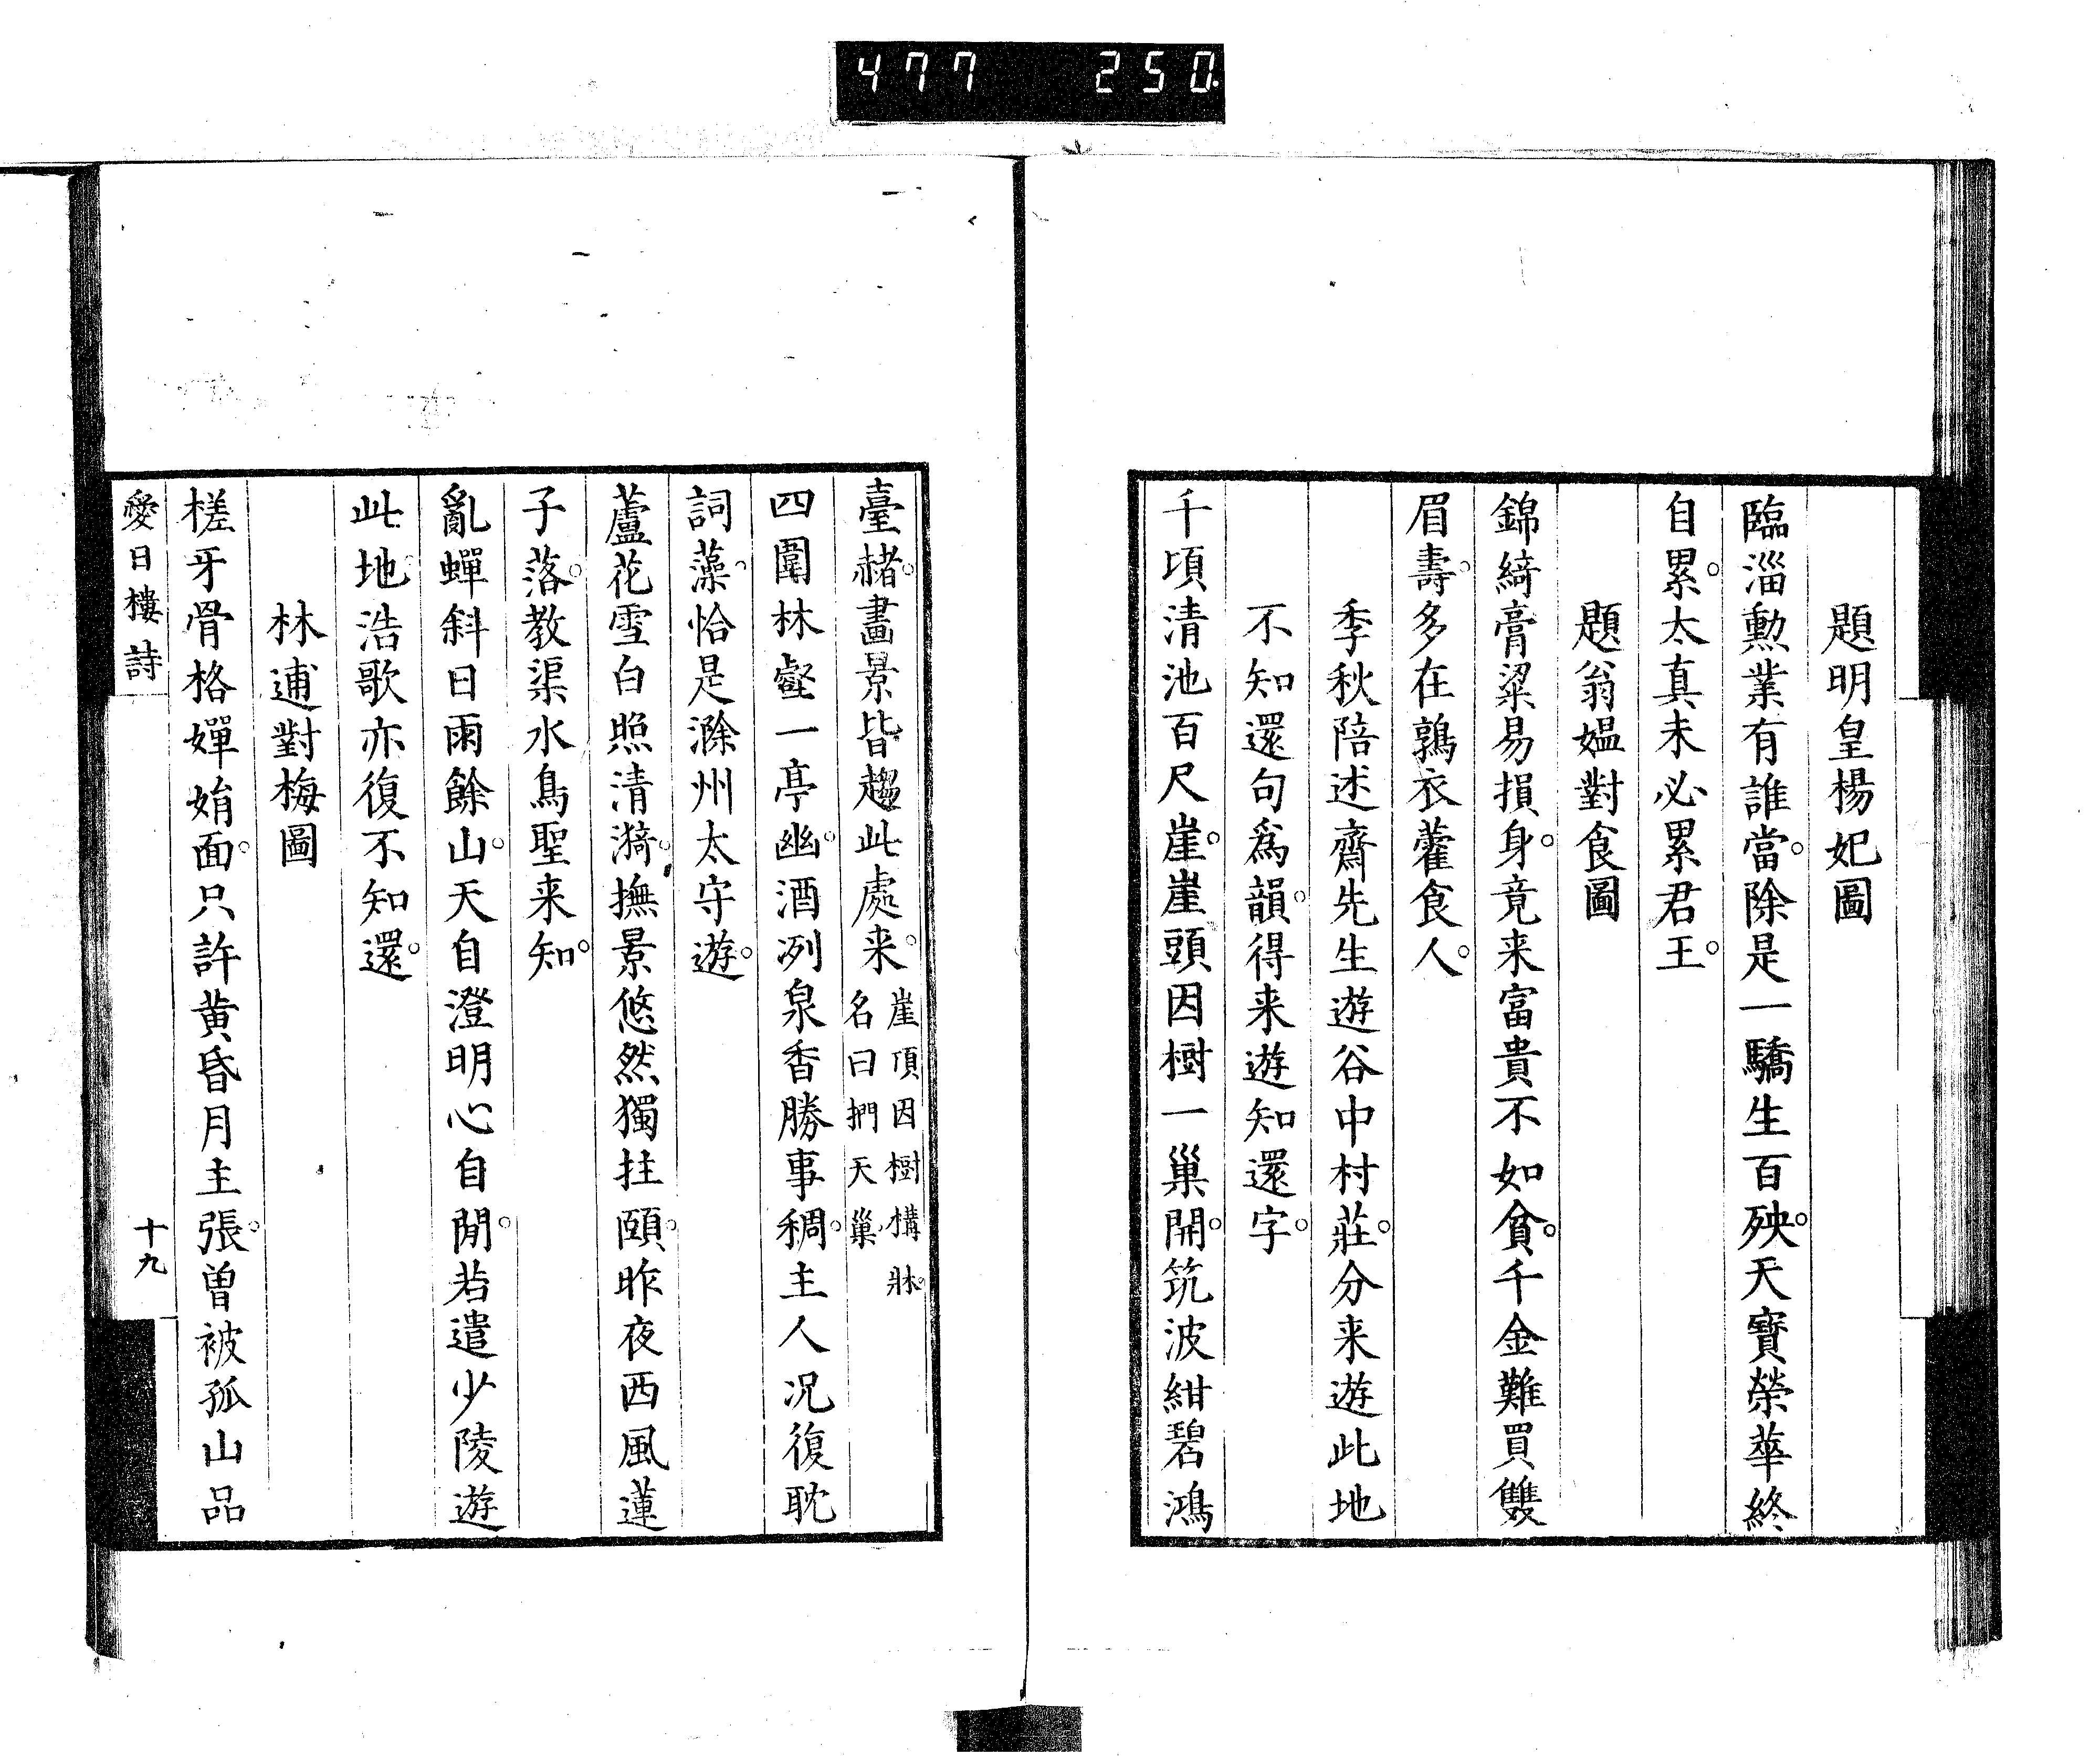 477 250
題明皇楊妃圖
臨淄勲業有誰當。除是一驕生百殃。天寶榮華終
自累。太真未必累君王。
題翁媼對食圖
錦綺膏粱易損身。竟来富貴不如貧。千金難買雙
眉壽。多在鶉衣藿食人。
季秋陪述齋先生遊谷中村莊。分来遊此地
不知還句爲韻。得来遊知還字。
千頃清池百尺崖。崖頭因樹一巢開。筑波紺碧鴻
臺赭。畫景皆趨此處来。崖頂因樹構牀。
名曰捫天巢
四圍林壑一亭幽。酒冽泉香勝事稠。主人况復耽
詞藻。恰是滁州太守遊。
蘆花雪白照清漪。撫景悠然獨拄頤。昨夜西風蓮
子落。教渠水鳥聖来知。
亂蟬斜日雨餘山。天自澄明心自閒。若遣少陵遊
此地。浩歌亦復不知還。
林逋對梅圖
槎牙骨格嬋娟面。只許黄昏月主張。曽被孤山品
愛日樓詩
十九